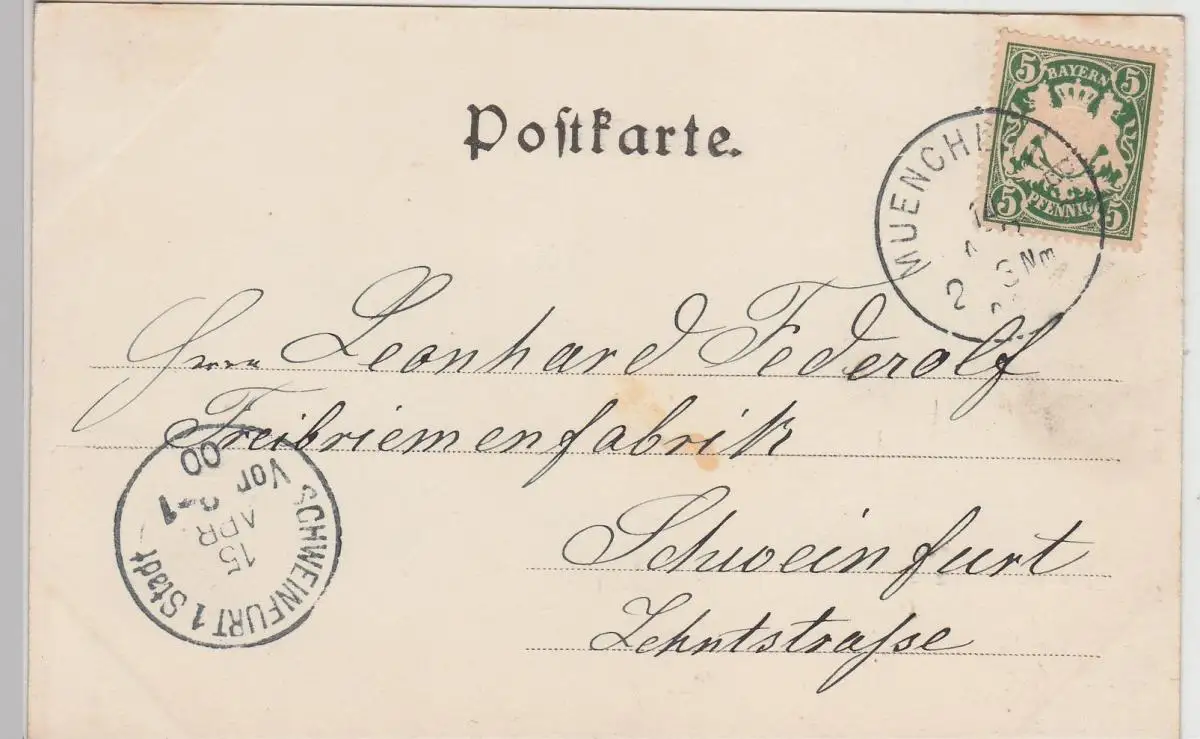 Postkarte.
5 BAYERN 5
5 PFENNIG 5
MUENCHEN
2 Nm
Herrn Leonhard Federolf
Treibriemenfabrik
Schweinfurt
Zehntstraſse
SCHWEINFURT 1 Stadt
15
APR
Vor
00